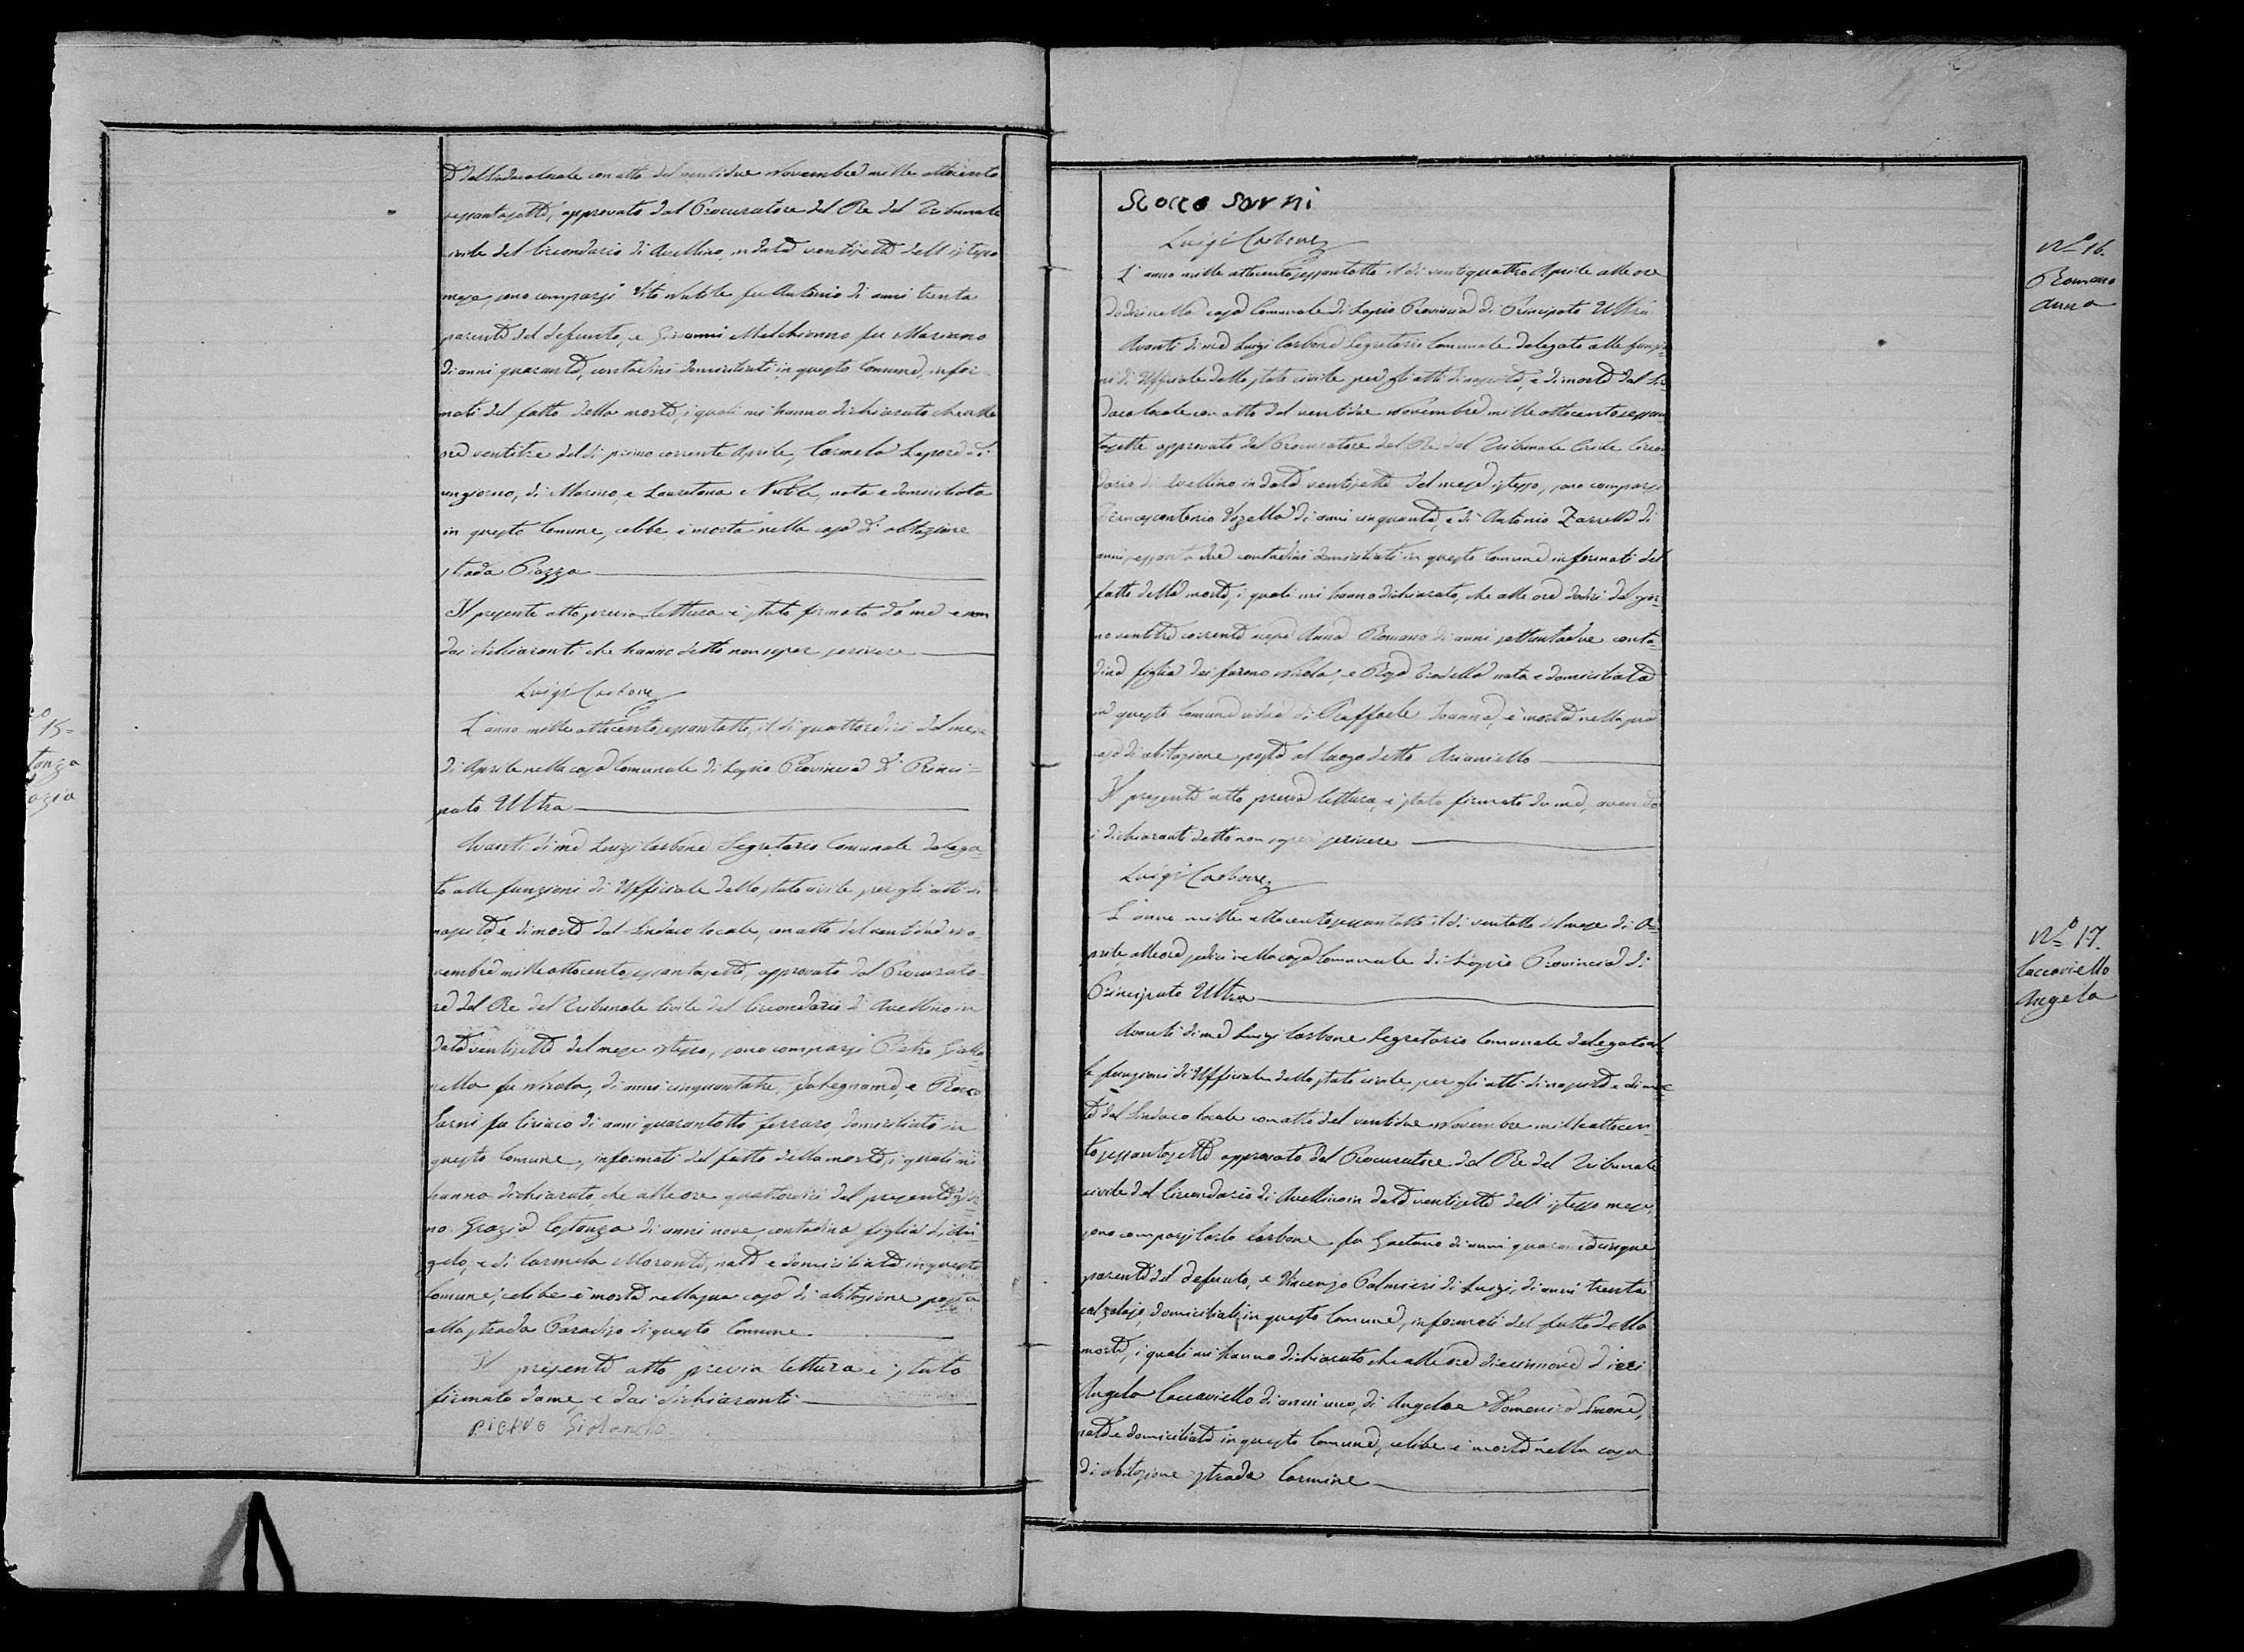 dal Sindaco locale con atto del ventidue Novembre mille ottocento
sessantasette, approvato dal Procuratore del Re del Tribunale
civile del Circondario di Avellino, in data ventisette dell'istesso
mese, sono comparsi Vito Nutile fu Antonio di anni trenta
parente del defunto, e Giovanni Melchionno fu Mariano
di anni quaranta, contadini domiciliati in questo Comune, infor-
mati del fatto della morte, i quali mi hanno dichiarato che alle
ore ventitre del dì primo corrente Aprile, Carmela Lepore di
un giorno, di Marino, e Lauretana Nutile, nata e domiciliata
in questo Comune, celibe è morta nella casa di abitazione
strada Piazza
Il presente atto previa lettura è stato firmato da me e non
dai dichiaranti che hanno detto non saper scrivere
Luigi Carbone
15=
tonza
azia
L'anno mille ottocento sessantotto, il dì quattordici del mese
di Aprile nella casa Comunale di Lapio Provincia di Princi=
pato Ultra
Avanti di me Luigi Carbone Segretario Comunale delega=
to alle funzioni di Uffiziale dello stato civile per gli atti di
nascita, e di morte dal Sindaco locale, con atto del ventidue No=
vembre mille ottocento sessantasette, approvato dal Procurato=
re del Re del Tribunale Civile del Circondario di Avellino in
data ventisette del mese istesso, sono comparsi Pietro
nella fu Nicola, di anni cinquantatre, falegname, e Rocco
Sarni fu Ciriaco di anni quarantotto ferraro, domiciliati in
questo Comune, informati del fatto della morte, i quali mi
hanno dichiarato, che alle ore quattordici del presente gior
no Grazia Costanza di anni nove, contadina figlia di An=
gelo, e di Carmela Morante, nata e domiciliata in questo
Comune, celibe è morta nella sua casa di abitazione posta
alla strada Paradiso di questo Comune
Il presente atto previa lettura è stato
firmato da me, e dai dichiaranti
Rocco Sarni
Luigi Carbone
No 16.
Romano
Anna
L'anno mille ottocento sessantotto il dì ventiquattro Aprile alle ore
dodici nella casa Comunale di Lapio Provincia di Principato Ultra
Avanti di me Luigi Carbone Segretario Comunale delegato alle funzio=
ni di Uffiziale dello stato civile per gli atti di nascita, e di morte dal Sin
daco locale con atto del ventidue Novembre mille ottocento sessan
tasette approvato dal Procuratore del Re del Tribunale Civile Circon
dario di Avellino in data ventisette del mese istesso, sono comparsi
Francescantonio Vozella di anni cinquanta, e di Antonio Zarrella di
anni sessantadue contadini domiciliati in questo Comune informati del
fatto della morte, i quali mi hanno dichiarato, che alle ore dodici del gior=
no ventitre corrente mese Anna Romano di anni settantadue conta=
dina figlia dei furono Nicola, e Rosa nata e domiciliata
in questo Comune vedova di Raffaele Ioanna, è morta nella sua
casa di abitazione posta al luogo detto Arianiello
Il presente atto previa lettura, è stato firmato da me, avendo
i dichiaranti detto non saper scrivere
Luigi Carbone
No 17.
Caccaviello
Angelo
L'anno mille ottocento sessantotto il dì ventotto del mese di A=
prile, alle ore sedici nella casa Comunale di Lapio Provincia di
Principato Ultra
Avanti di me Luigi Carbone Segretario Comunale delegato al=
le funzioni di Uffiziale dello stato civile, per gli atti di nascita e di mor
te dal Sindaco locale con atto del ventidue Novembre mille ottocen=
to sessantasette approvato dal Procuratore del Re del Tribunale
civile del Circondario di Avellino in data ventisette dell'istesso mese,
sono comparsi Carlo Carbone fu Gaetano di anni quarantacinque
parente del defunto, e Vincenzo Palmieri di Luigi, di anni trenta
calzolajo, domiciliati in questo Comune, informati del fatto della
morte, i quali mi hanno dichiarato che alle ore diecinnove d'ieri
Angelo Caccaviello di anni uno, di Angelo e Domenica Simone,
nato e domiciliato in questo Comune, celibe è morto nella casa
di abitazione strada Carmine